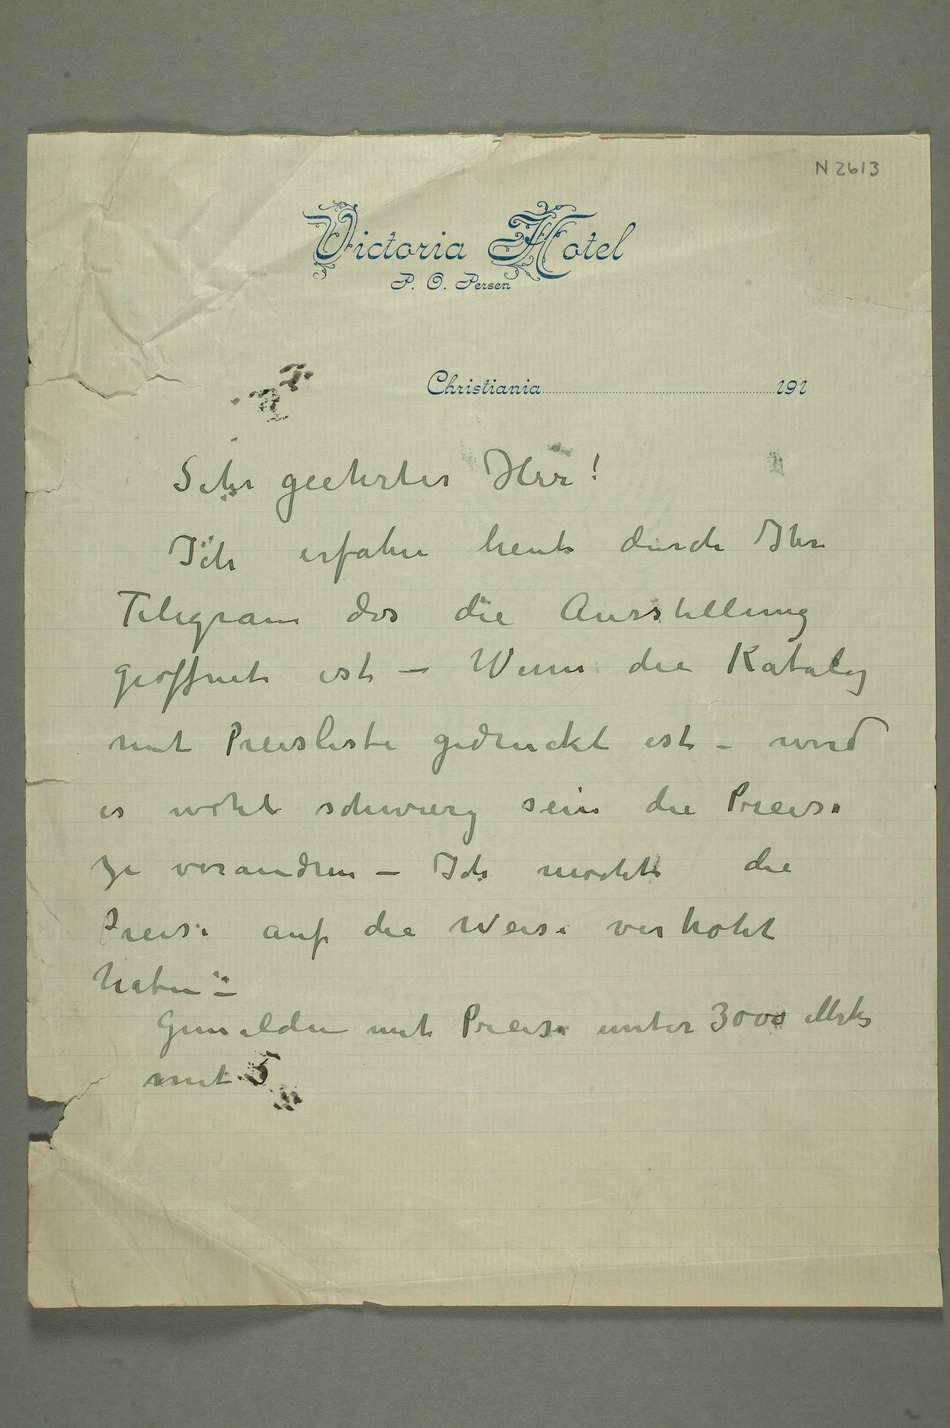 N 2613
Victoria Hotel
P. O. Persen
Christiania 191
Sehr geehrter Herr!
Ich erfahre heute durch Ihr
Telegram das die Ausstellung
geöffnet ist – Wenn die Katalog
mit Preisliste gedruckt ist – wird
es wohl schwierig sein die Preise
zu verandren – Ich mochte die
Preise auf die Weise verhoht
haben –
Gemälden mit Preise unter 3000 Mrk
mit 5